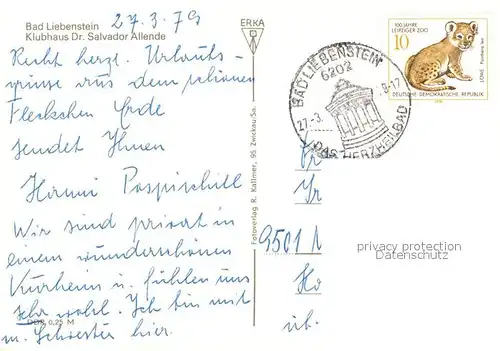 Bad Liebenstein
Klubhaus Dr. Salvador Allende
27.3.79
Recht herzl. Urlaubs-
grüsse aus dem schönen
Fleckchen Erde
sendet Ihnen
Hanni Pospischill
Wir sind privat in
einem wunderschönen
Kurheim u. fühlen uns
sehr wohl. Ich bin mit
m. Schwester hier.
DDR 0,25 M
ERKA
Fotoverlag R. Kallmer, 95 Zwickau-Sa.
BAD LIEBENSTEIN
6202
27.-3.
-9-17
DAS HERZHEILBAD
100 JAHRE
LEIPZIGER ZOO
10
LÖWE Panthera leo
DEUTSCHE DEMOKRATISCHE REPUBLIK
Fr
9501
privacy protection
Datenschutz